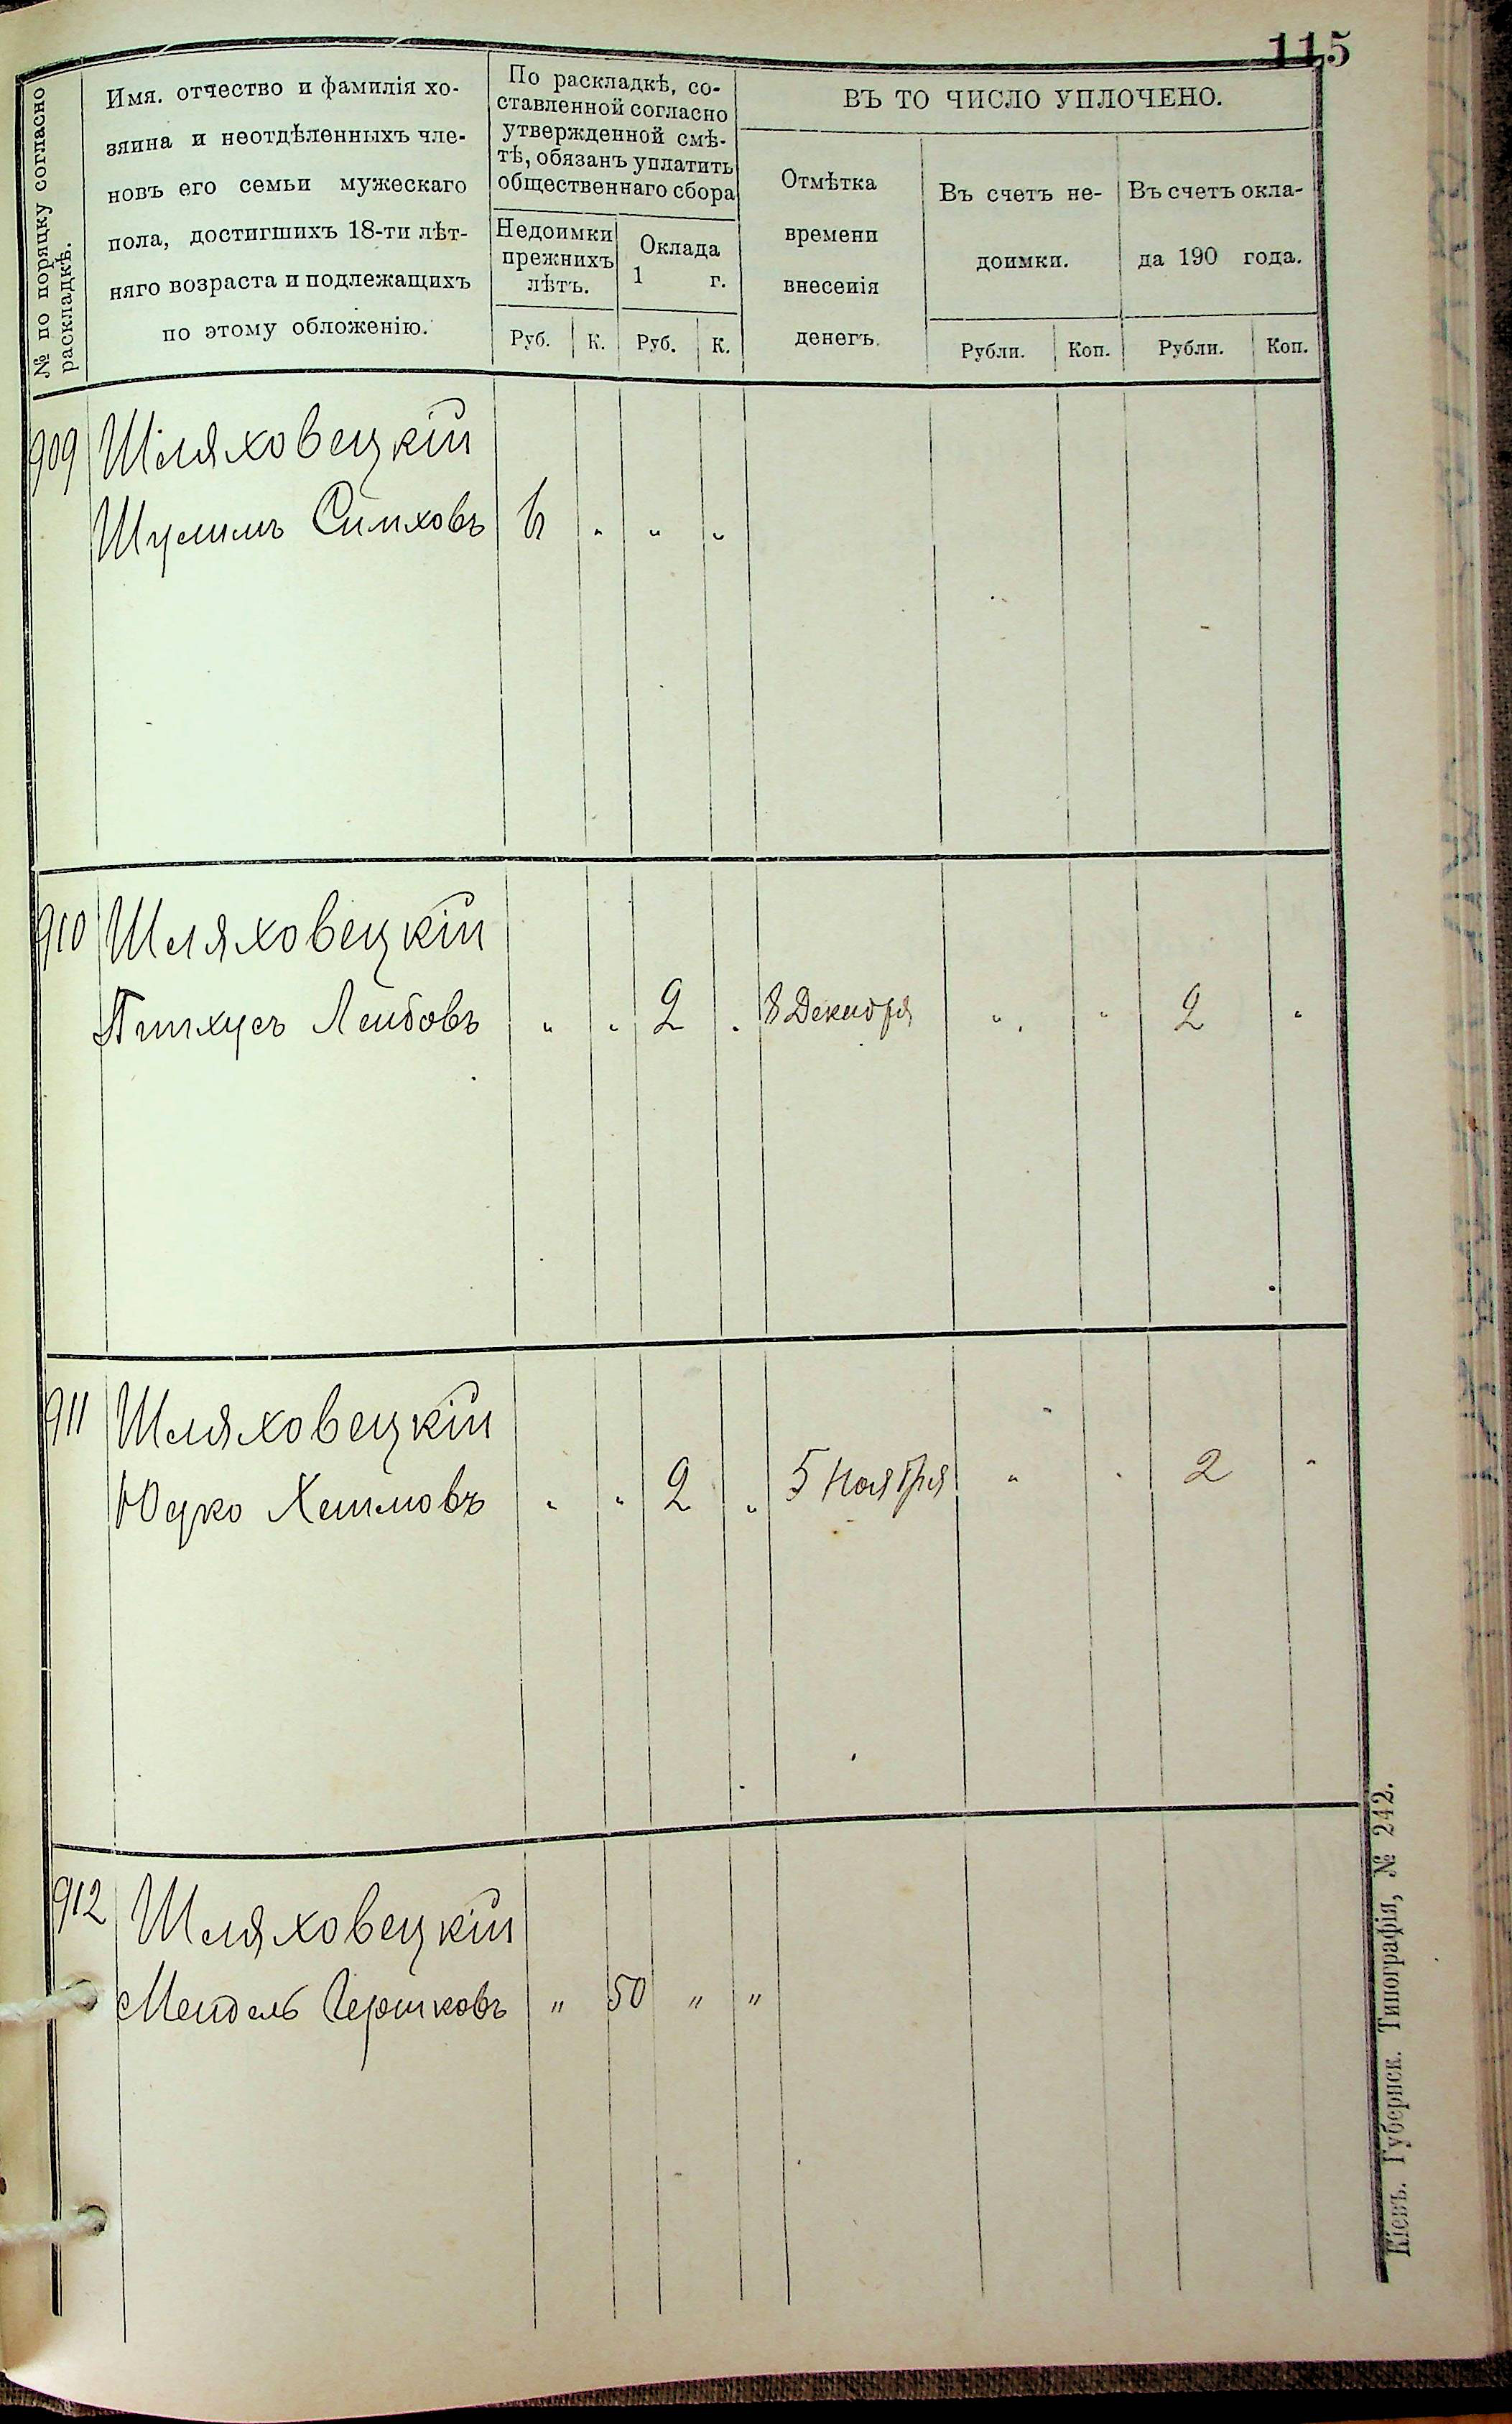 115
№ по порядку согласно
раскладкѣ.
Имя. отчество и фамилія хо-
зяина и неотдѣленныхъ чле-
новъ его семьи мужескаго
пола, достигшихъ 18-ти лѣт-
няго возраста и подлежащихъ
по этому обложенію.
По раскладкѣ, со-
ставленной согласно
утвержденной смѣ-
тѣ, обязанъ уплатить
общественнаго сбора
Недоимки
прежнихъ
лѣтъ.
Руб. К.
Оклада
1 г.
Руб. К.
ВЪ ТО ЧИСЛО УПЛОЧЕНО.
Отмѣтка
времени
внесенія
денегъ.
Въ счетъ не-
доимки.
Рубли. Коп.
Въ счетъ окла-
да 190 года.
Рубли. Коп.
909 Шляховецкій
Шулимъ Симховъ " " "
910 Шляховецкій
Пинхусъ Лейбовъ " " 2 " 8 Декабря " " 2 "
911 Шляховецкій
Юдко Хаимовъ " " 2 " 5 Ноября " " 2 "
912 Шляховецкій
Мендель Гершковъ " 50 " "
Кіевъ. Губернск. Типографія, № 242.